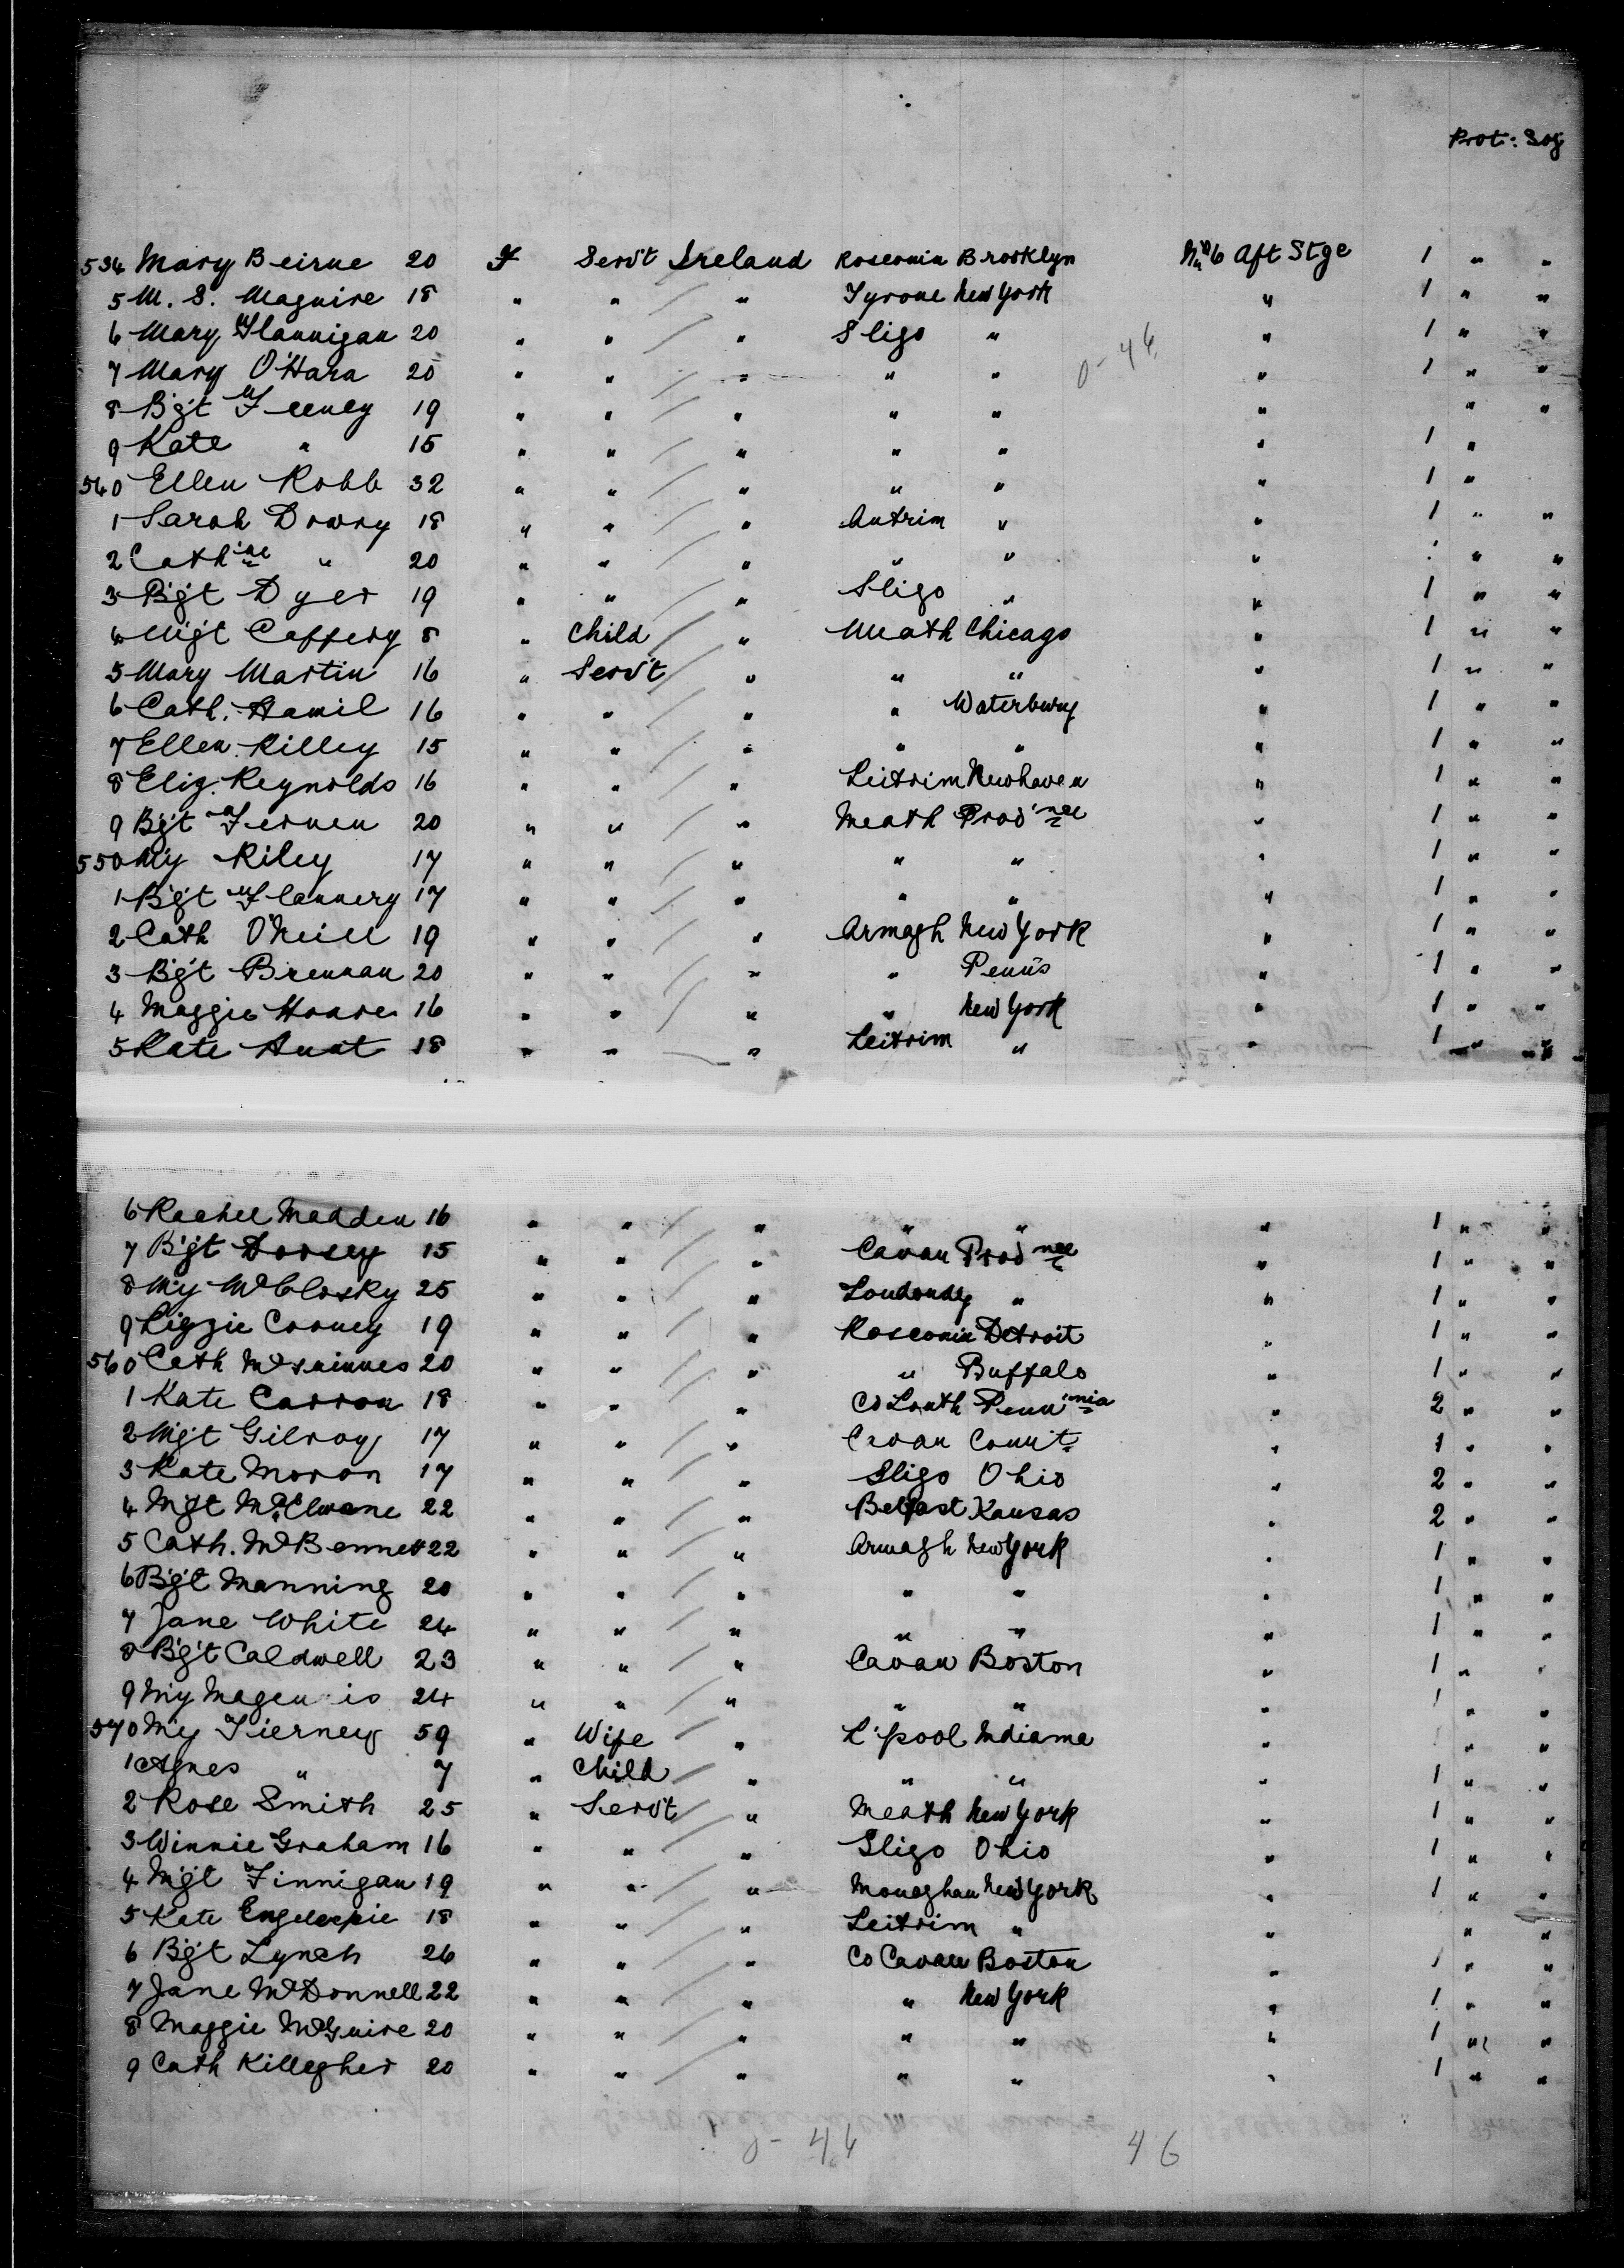 Prot: Soj
534 Mary Beirne 20 F Serv't Ireland Roscomin Brooklyn No 6 Aft Stge 1 " "
5 M. S. Maguire 18 " " " Tyrone New York " 1 " "
6 Mary Flannigan 20 " " " Sligo " " 1 " "
7 Mary O'Hara 20 " " " " " " 1 " "
0-46
8 Bgt Feeney 19 " " " " " " " "
9 Kate " 15 " " " " " " 1 "
540 Ellen Robb 32 " " " " " " 1 "
1 Sarah Drury 18 " " " Antrim " " 1 " "
2 Cath'ine " 20 " " " " " " " "
3 Bgt Dyer 19 " " " Sligo " " 1 " "
4 Mgt Caffery 8 " Child " Meath Chicago " 1 " "
5 Mary Martin 16 " Serv't " " " " 1 " "
6 Cath. Hamil 16 " " " " Waterbury " 1 " "
7 Ellen Rilley 15 " " " " " " 1 " "
8 Eliz. Reynolds 16 " " " Leitrim Newhaven " 1 " "
9 Bgt Fernen 20 " " " Meath Prov'nce " 1 " "
550 My Riley 17 " " " " " " 1 " "
1 Bgt Flannery 17 " " " " " " 1 " "
2 Cath O'Neill 19 " " " Armagh New York " 1 " "
3 Bgt Brennan 20 " " " " Penn's " 1 " "
4 Maggie Hoare 16 " " " " New York " 1 " "
5 Kate Hunt 18 " " " Leitrim " " 1 " "
6 Rachel Madden 16 " " " " " " 1 " "
7 Bgt Dorsey 15 " " " Cavan Prov'nce " 1 " "
8 My McClosky 25 " " " Londondy " " 1 " "
9 Lizzie Cooney 19 " " " Roscomin Detroit " 1 " "
560 Cath McGuinnes 20 " " " " Buffalo " 1 " "
1 Kate Carron 18 " " " Co Louth Penn'nia " 2 " "
2 Mgt Gilroy 17 " " " Cavan Connt. " 1 " "
3 Kate Moron 17 " " " Sligo Ohio " 2 " "
4 Mgt McElwane 22 " " " Belfast Kansas " 2 " "
5 Cath. McBennett 22 " " " Armagh New York " 1 " "
6 Bgt Manning 20 " " " " " " 1 " "
7 Jane White 24 " " " " " " 1 " "
8 Bgt Caldwell 23 " " " Cavan Boston " 1 " "
9 My Magennis 24 " " " " " " 1 " "
570 My Tierney 59 " Wife " L'pool Indiana " " "
1 Agnes " 7 " Child " " " " 1 " "
2 Rose Smith 25 " Serv't " Meath New York " 1 " "
3 Winnie Graham 16 " " " Sligo Ohio " 1 " "
4 Mgt Finnigan 19 " " " Monaghan New York " 1 " "
5 Kate 18 " " " Leitrim " " " "
6 Bgt Lynch 26 " " " Co Cavan Boston " 1 " "
7 Jane McDonnell 22 " " " " New York " 1 " "
8 Maggie McGuire 20 " " " " " " 1 " "
9 Cath Killegher 20 " " " " " " 1 " "
0-46 46